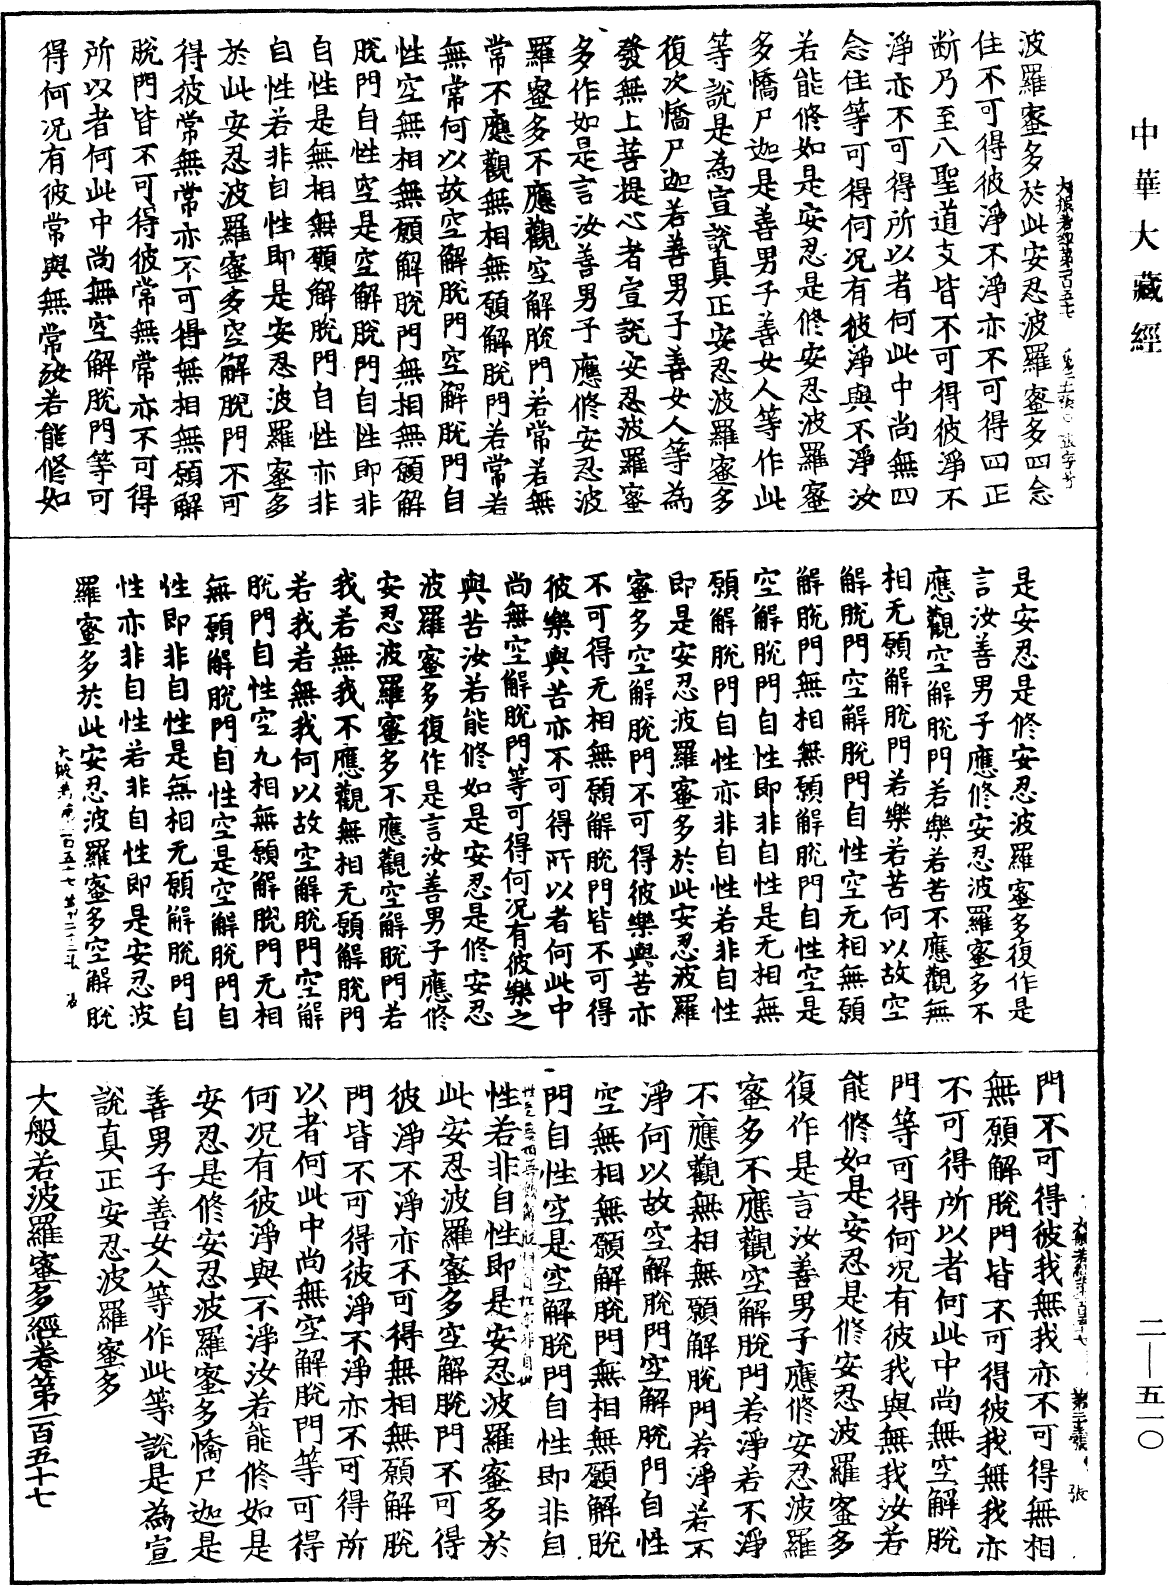 中華大藏經
波羅蜜多於此安忍波羅蜜多四念
住不可得彼淨不淨亦不可得四正
断乃至八聖道支皆不可得彼淨不
淨亦不可得所以者何此中尚無四
念住等可得何况有彼淨與不淨汝
若能修如是安忍是修安忍波羅蜜
多憍尸迦是善男子善女人等作此
等說是為宣說真正安忍波羅蜜多
復次憍尸迦若善男子善女人等為
發無上菩提心者宣說安忍波羅蜜
多作如是言汝善男子應修安忍波
羅蜜多不應觀空解脫門若常若無
常不應觀無相無願解脫門若常若
無常何以故空解脫門空解脫門自
性空無相無願解脫門無相無願解
脫門自性空是空解脫門自性即非
自性是無相無願解脫門自性亦非
自性若非自性即是安忍波羅蜜多
於此安忍波羅蜜多空解脫門不可
得彼常無常亦不可得無相無願解
脫門皆不可得彼常無常亦不可得
所以者何此中尚無空解脫門等可
得何况有彼常與無常汝若能修如
是安忍是修安忍波羅蜜多復作是
言汝善男子應修安忍波羅蜜多不
應觀空解脫門若樂若苦不應觀無
相无願解脫門若樂若苦何以故空
解脫門空解脫門自性空无相無願
解脫門無相無願解脫門自性空是
空解脫門自性即非自性是无相無
願解脫門自性亦非自性若非自性
即是安忍波羅蜜多於此安忍波羅
蜜多空解脫門不可得彼樂與苦亦
不可得无相無願解脫門皆不可得
彼樂與苦亦不可得所以者何此中
尚無空解脫門等可得何况有彼樂之
與苦汝若能修如是安忍是修安忍
波羅蜜多復作是言汝善男子應修
安忍波羅蜜多不應觀空解脫門若
我若無我不應觀無相无願解脫門
若我若無我何以故空解脫門空解
脫門自性空无相無願解脫門无相
無願解脫門自性空是空解脫門自
性即非自性是無相无願解脫門自
性亦非自性若非自性即是安忍波
羅蜜多於此安忍波羅蜜多空解脫
門不可得彼我無我亦不可得無相
無願解脫門皆不可得彼我無我亦
不可得所以者何此中尚無空解脫
門等可得何况有彼我與無我汝若
能修如是安忍是修安忍波羅蜜多
復作是言汝善男子應修安忍波羅
蜜多不應觀空解脫門若淨若不淨
不應觀無相無願解脫門若淨若不
淨何以故空解脫門空解脫門自性
空無相無願解脫門無相無願解脫
門自性空是空解脫門自性即非自
性是無相無願解脫門自性亦非自
性若非自性即是安忍波羅蜜多於
此安忍波羅蜜多空解脫門不可得
彼淨不淨亦不可得無相無願解脫
門皆不可得彼淨不淨亦不可得所
以者何此中尚無空解脫門等可得
何况有彼淨與不淨汝若能修如是
安忍是修安忍波羅蜜多憍尸迦是
善男子善女人等作此等說是為宣
說真正安忍波羅蜜多
大般若波羅蜜多經卷第一百五十七
二—五一〇